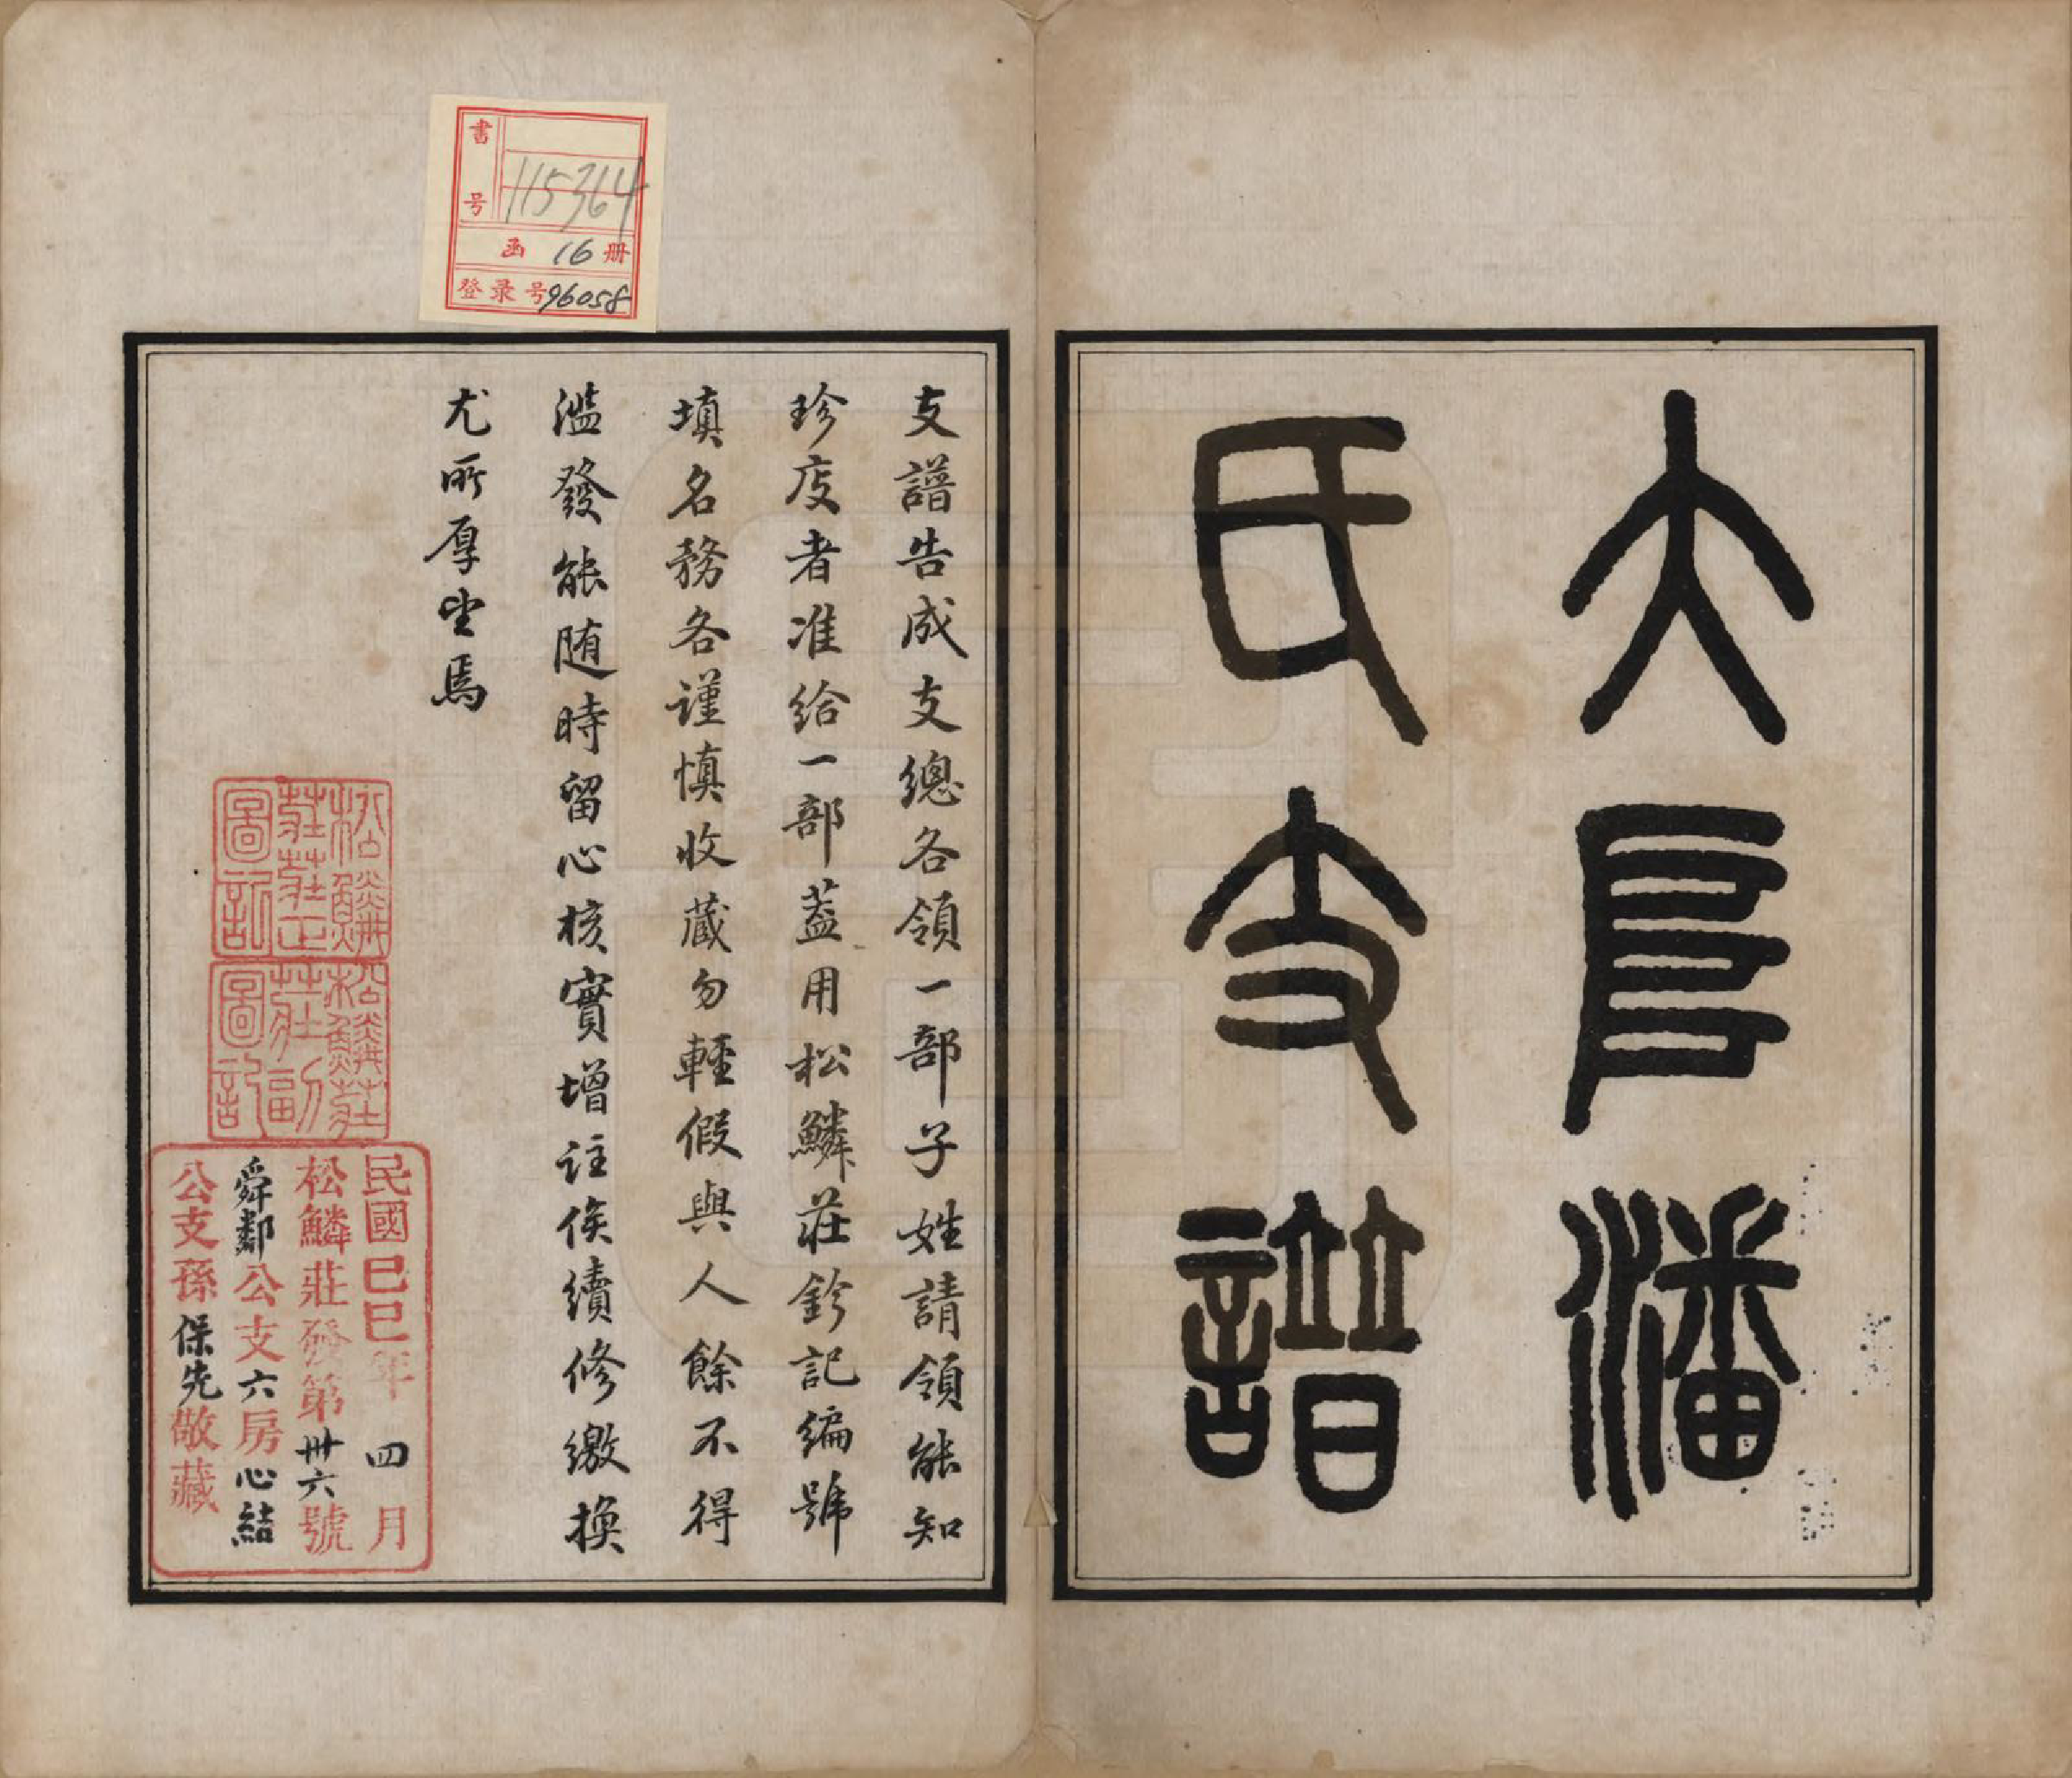 大阜潘
氏支譜
支譜告成支總各領一部子姓請領能知
珍庋者准給一部蓋用松鱗莊鈐記編號
填名務各謹慎收藏勿輕假與人餘不得
濫發能随時留心核實增註俟續修繳換
尤所厚望焉
松鱗
莊莊正
圖記
松鱗莊
莊副
圖記
民國己巳年四月
松鱗莊發第卅六號
舜鄰公支六房心結
公支孫保先敬藏
書号 115364
函 16 册
登录号 96058